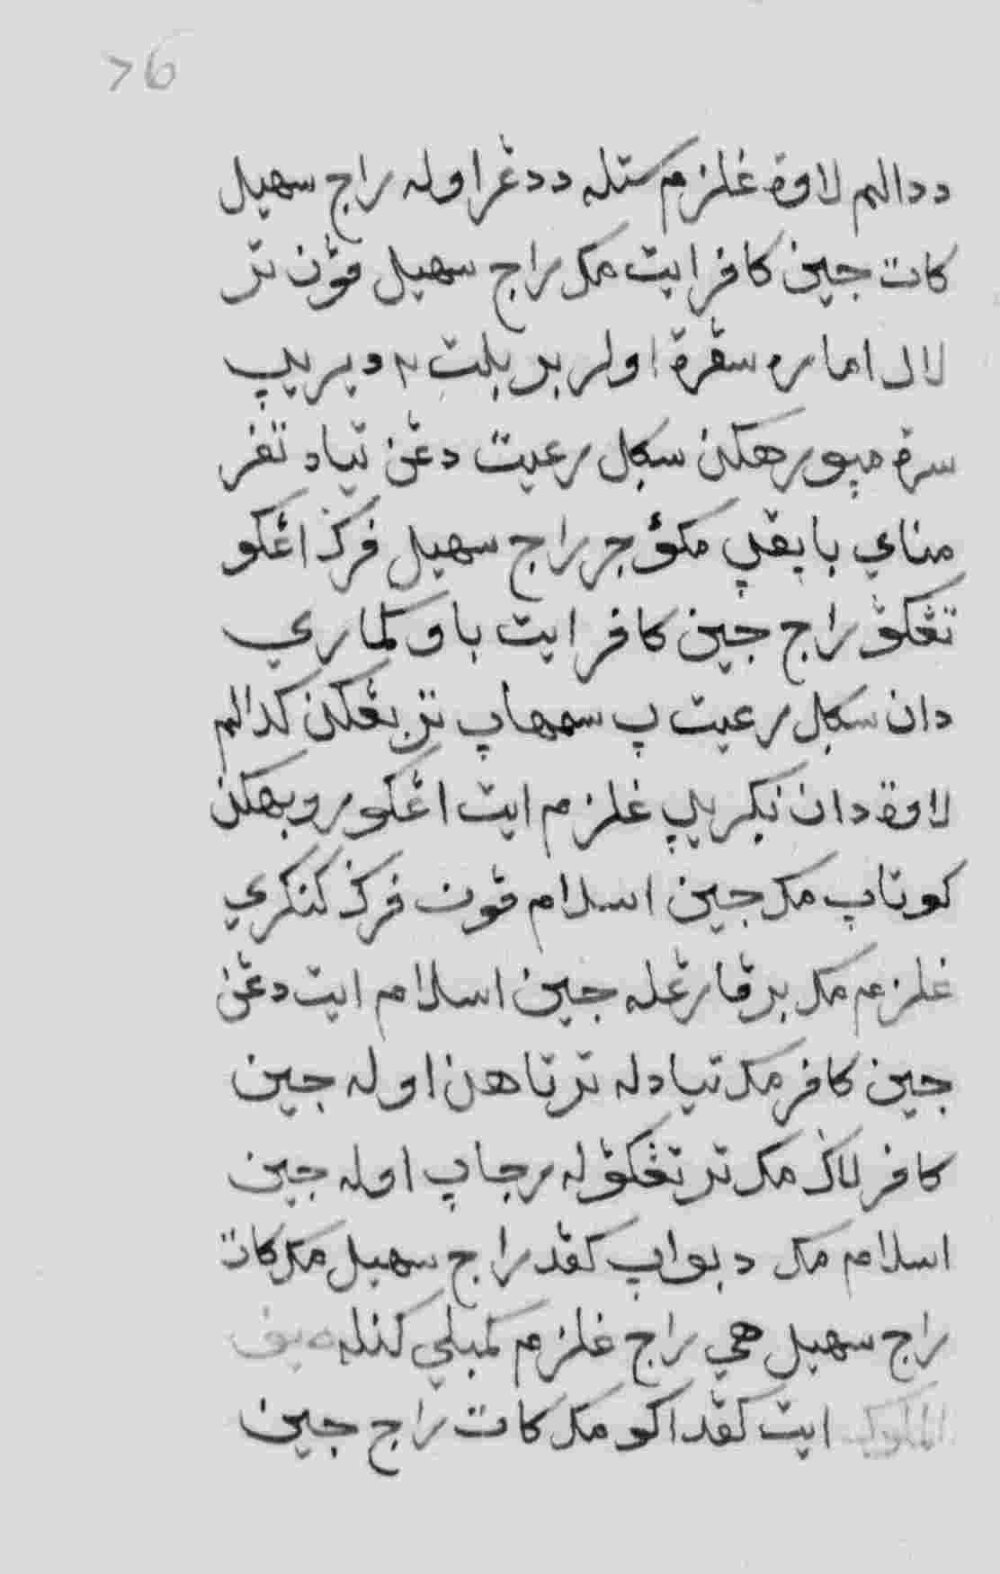 76
ددالم لاوة غلزم ستله ددڠر اوله راج سهيل
كات جين كافر ايت مك راج سهيل ڤون تر
لالا اماره سڤرة اولر بربلت ٢ ديريڽ
سرة مڽورهكن سكل رعيت دڠن تياد تفر
مناي باڽقڽ مكؤجر راج سهيل فركـ اڠكو
تڠكڤ راج جين كافر ايت باوكماري
دان سكل رعيتڽ سمهاڽ تربڠكن كدالم
لاوة دان نكريڽ غلزم ايت اڠكو روبهكن
كوتاڽ مك جين اسلام ڤون فركـ كنكري
غلزم مك برڤارڠله جين اسلام ايت دڠن
جين كافر مك تيادله ترتاهن اوله جين
كافر لاكـ مك ترتڠكڤله رجاڽ اوله جين
اسلام مك دبواڽ كڤد راج سهيل مك كات
راج سهيل هي راج غلزم كمبلي كنله سيف
الملوك ايت كڤداكو مك كات راج جين